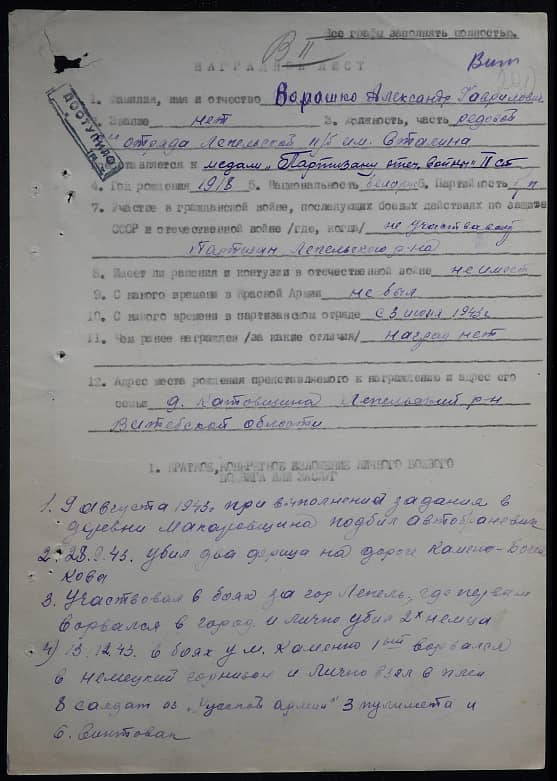 Все графы заполнять полностью.
В II
Вит
НАГРАДНОЙ ЛИСТ
1. Фамилия, имя и отчество Варашко Александр Гаврилович
ПОСТУПИЛО
2. Звание нет 3. Должность, часть редовой
отряда Лепельской п/б им. Сталина
Представляется к медали „Партизану отеч. войны" II ст
4. Год рождения 1918 5. Национальность белорус 6. Партийность б/п
7. Участие в гражданской войне, последующих боевых действиях по защите
СССР и отечественной войне /где, когда/ не участвовал
Партизан Лепельского р-на
8. Имеет ли ранения и контузии в отечественной войне не имеет
9. С какого времени в Красной Армии не был
10. С какого времени в партизанском отряде с 3 июня 1943 г
11. Чем ранее награжден /за какие отличия/ наград нет
12. Адрес места рождения представляемого к награждению и адрес его
семьи д. Катовщина Лепельский р-н
Витебской области
1. КРАТКОЕ, КОНКРЕТНОЕ ИЗЛОЖЕНИЕ ЛИЧНОГО БОЕВОГО
ПОДВИГА ИЛИ ЗАСЛУГ
1. 9 августа 1943г. при выполнений задания в
деревни Макаровщина подбил автобраневик
2. 28.9.43. убил два фрица на дороге Камено-
кова
3. Участвовал в боях за гор Лепель, где первым
ворвался в город и лично убил 2х немца
4) 13.12.43. в боях у м. Каменко 1ый ворвался
в немецкий горнизон и лично взял в плен
8 салдат из „Руской армии" 3 пулимета и
6. Винтовак